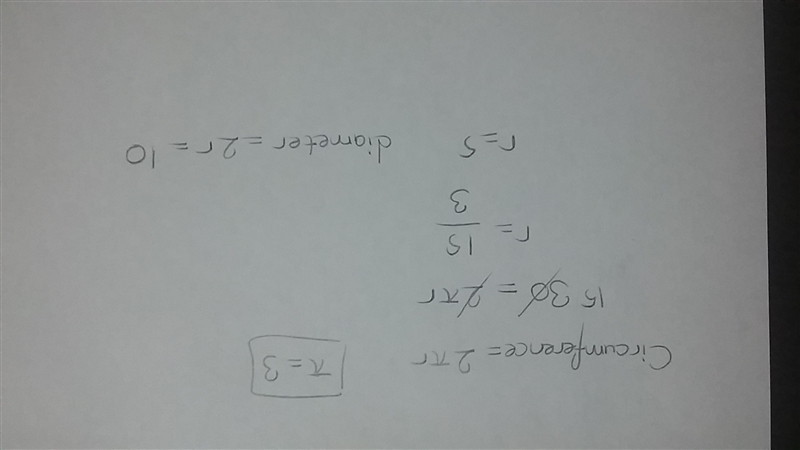 Circumference = 2πr π = 3
15 30 = 2πr
r = 15/3
r = 5 diameter = 2r = 10